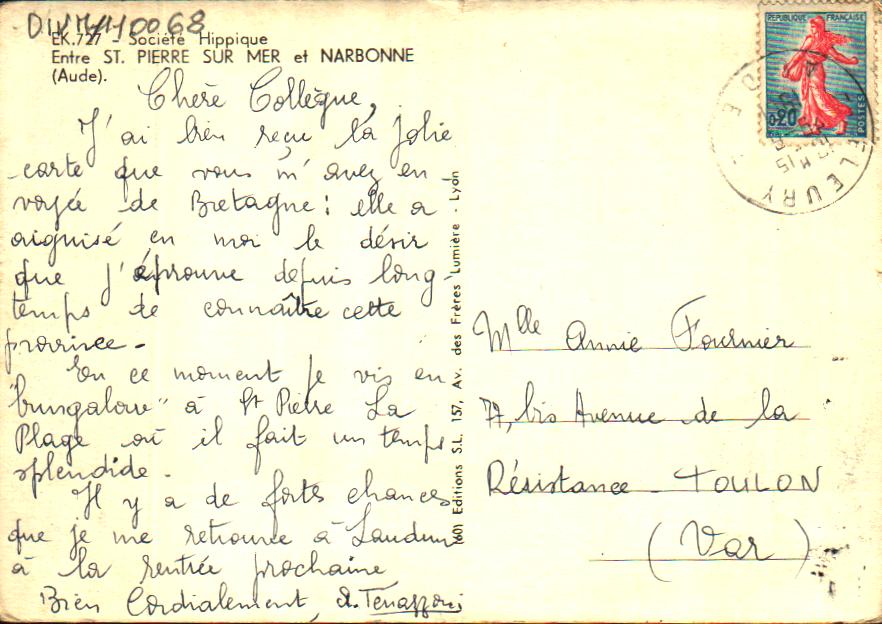 DIVM110068
EK.727 - Société Hippique
Entre ST. PIERRE SUR MER et NARBONNE
(Aude).
Chère Collègue,
J'ai bien reçu la jolie
carte que vous m'avez en-
voyée de Bretagne : elle a
aiguisé en moi le désir
que j'éprouve depuis long-
temps de connaître cette
province -
En ce moment je vis en
"bungalow" à St Pierre La
Plage où il fait un temps
splendide.
Il y a de fortes chances
que je me retrouve à Laudun
à la rentrée prochaine
Bien Cordialement,
(60) Editions S.L. 157, Av. des Frères Lumière - Lyon
REPUBLIQUE FRANÇAISE
0,20
POSTES
FLEURY
Mlle Annie Fournier
77, bis Avenue de la
Résistance - TOULON
(Var)